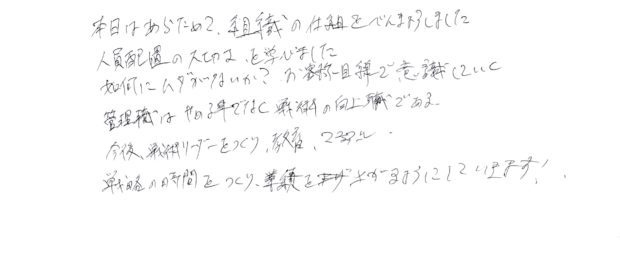 本日はあらためて、組織の仕組をべんきょうしました
人員配置の大切さを学びました
如何にムダがないか? お客様目線で意識していく
管理職はやる事でなく戦術の向上職である
今後、戦術リーダーをつくり、教育、マニアル
戦略の時間をつくり、業績を上がるようにしていきます!